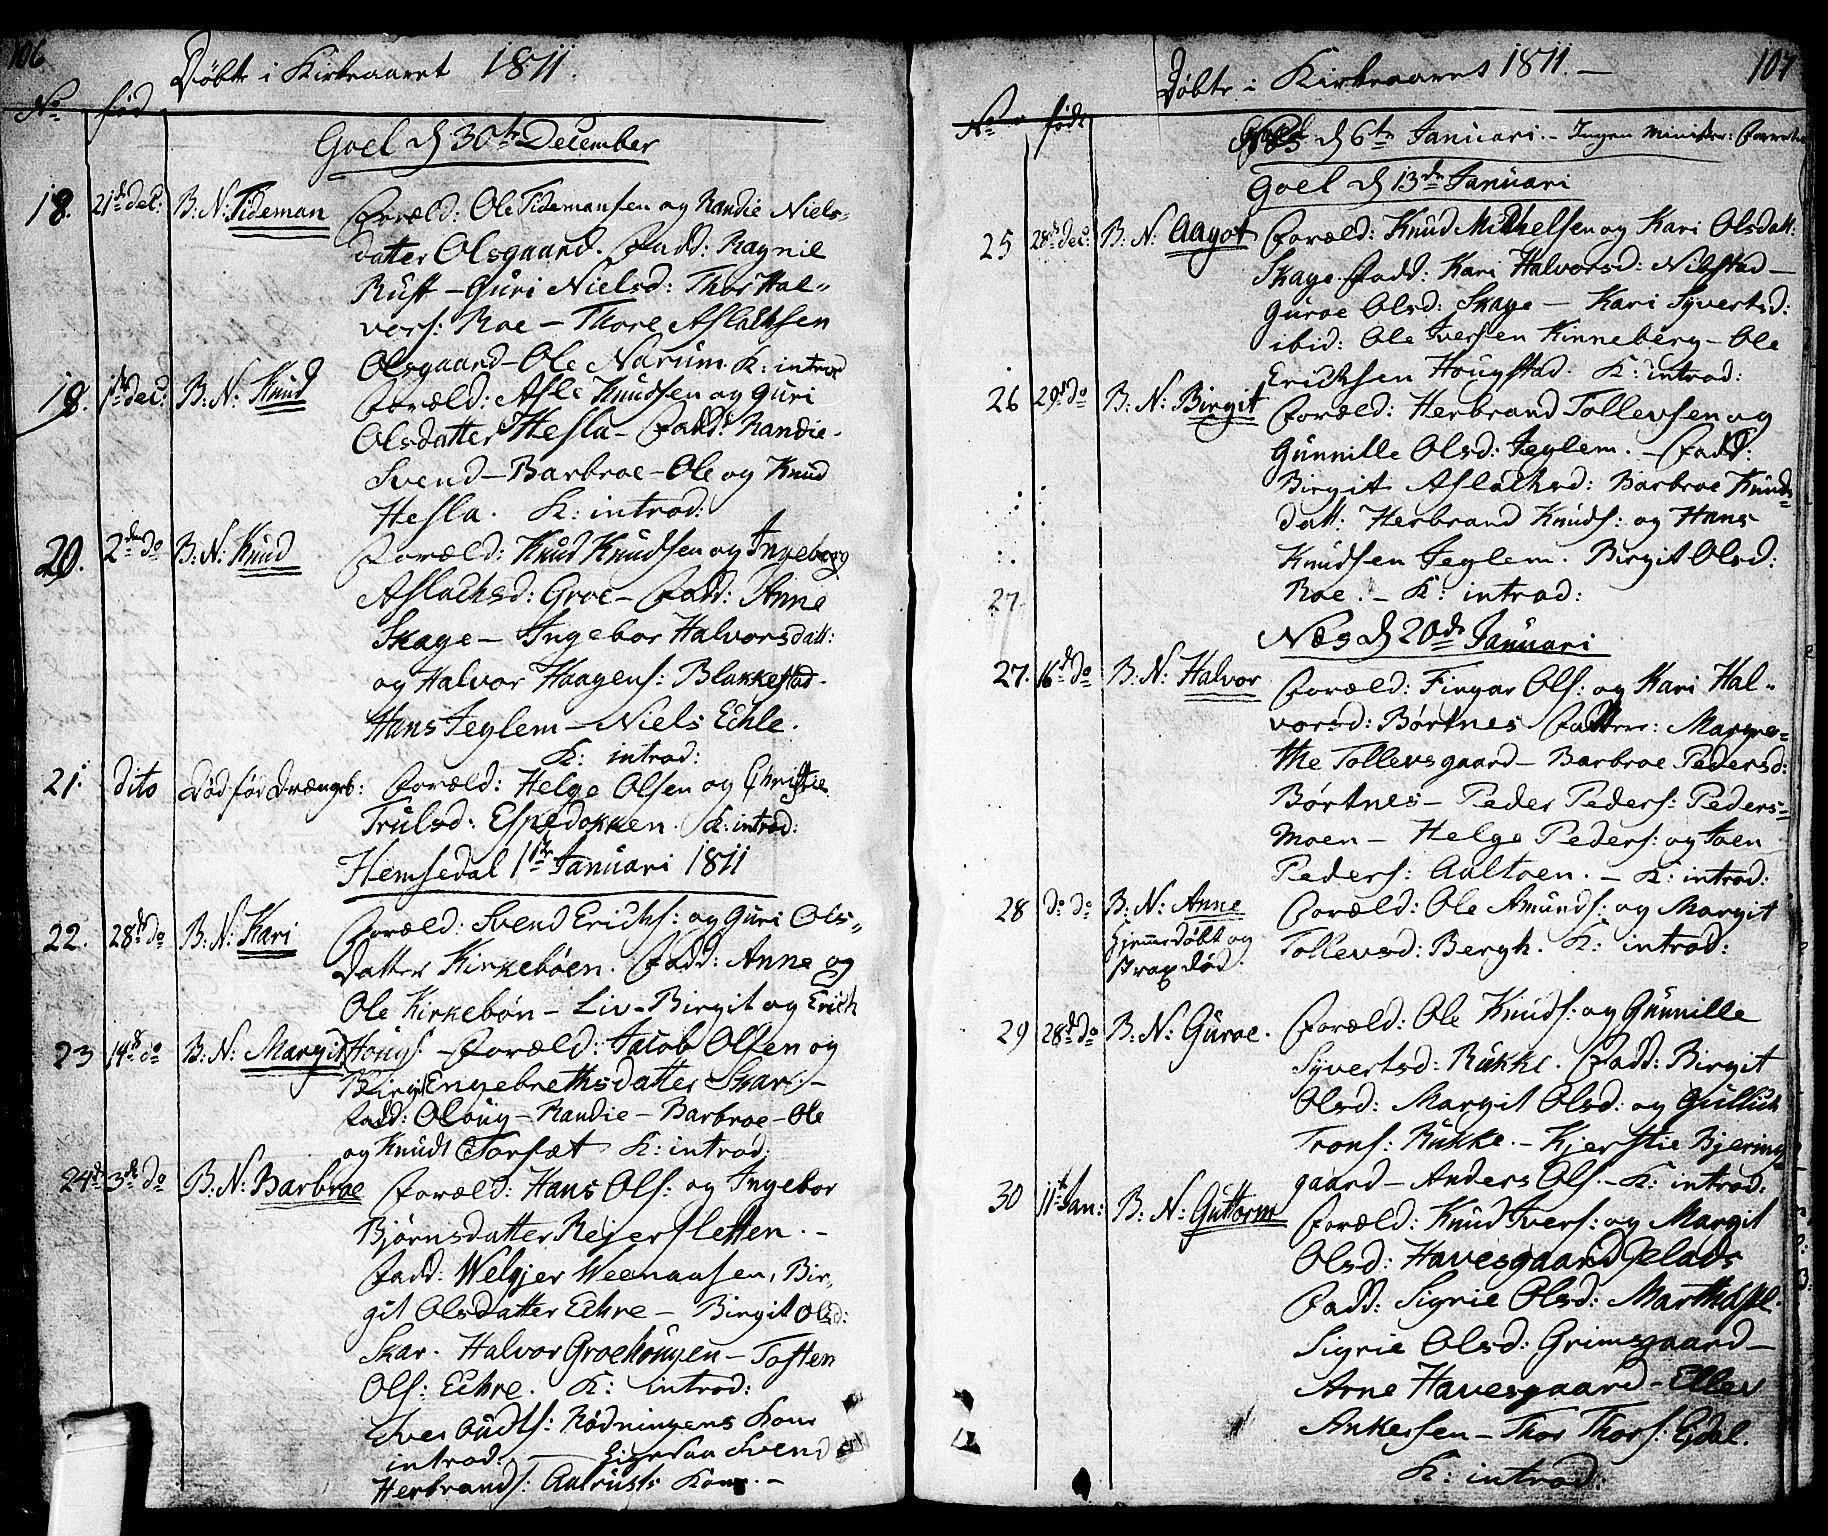 106
Døbte i Kirkeaaret 1811.
No født
Goel d 30te December
18. 21de Dec: B: N: Tideman Foræld: Ole Tidemansen og Randie Niels-
datter Olsgaard. Fadd: Ragnil
Rust - Guri Nielsd: Thor Hal-
vors: Roe - Thore Aslachsen
Olsgaard - Ole Narum. K: introd
19. 1ste dec: B: N: Knud Foræld: Asle Knudsen og Guri
Olsdatter Hesla - Fadd: Randie -
Svend - Barbroe - Ole og Knud
Hesla. K: introd:
20. 2den do B: N: Knud Foræld: Knud Knudsen og Ingeborg
Aslachsd: Groe - Fadd: Anne
Skage - Ingebor Halvorsdatt:
og Halvor Haagens: Blakkestad -
Hans Jeglem - Niels Echle.
K: introd:
21. dito Død før Drængeb: Foræld: Helge Olsen og Christie
Trulsd: Espedokken. K: introd:
Hemsedal 1ste Januari 1811
22. 28de do B: N: Kari Foræld: Svend Erichs: og Guri Ols-
datter Kirkebøen. Fadd: Anne og
Ole Kirkebøn - Liv - Birgit og Erich
23 14de do B: N: Margit Houg: - Foræld: Jacob Olsen og
Birgit Engebrethsdatter Skar: -
Fadd: Oloug - Randie - Barbroe - Ole
og Knudt Torsæt K: introd:
24de 3de do B: N: Barbroe Foræld: Hans Ols: og Ingebor
Bjørnsdatter Rejersletten. -
Fadd: Welgjer Weenaasen, Bir-
git Olsdatter Echre - Birgit Olsd:
Skar. Halvor Groehougen - Tosten
Ols: Echre. K: introd:
Iver Rødningens Kone
introd: Svend
Herbrands: Kone. -
107
Døbte i Kirkeaaret 1811. -
No født
d 6te Januari. - Ingen Minister: Forrettn
Goel d 13de Januari
25 28de dec: B: N: Aagot Foræld: Knud Mikkelsen og Kari Olsdatt:
Skage. Fadd: Kari Halvorsd: Nibstad -
Guroe Olsd: Skage - Kari Syvertsd:
ibid: Ole Iversen Kinneberg - Ole
Ericksen Hougstad. K: introd:
26 29de do B: N: Birgit Foræld: Herbrand Tollevsen og
Gunnille Olsd: Jeglem. - Fadd:
Birgit Aslachsd: Barbroe Knuds-
datt: Herbrand Knuds: og Hans
Knudsen Jeglem. Birgit Olsd:
27. Roe. - K: introd:
Næs d 20de Januari
27. 16de do B: N: Halvor Foræld: Fingar Ols: og Kari Hal-
vorsd: Børtnes Faddrer: Margre-
the Tollevsgaard - Barbroe Pedersd:
Børtnes - Peder Peders: Peders-
moen - Helge Peders: og Joen
Peders: Aaltoen. - K: introd:
28 do do B: N: Anne Foræld: Ole Amunds: og Margit
hjemmedøbt og Tollevsd: Bergh. K: introd:
strax død.
29 28de do B: N: Guroe. Foræld: Ole Knuds: og Gunnille
Syvertsd: Rukke. Fadd: Birgit
Olsd: Margit Olsd: og Gullich
Trons: Rukke. - Kjerstie Bjering-
gaard - Anders Ols. - K: introd:
30 11te Jan: B: N: Guttorm Foræld: Knud Ivers: og Margit
Olsd: Havesgaard
Fadd: Sigrie Olsd:
Sigrie Olsd: Grimsgaard -
Arne Havesgaard - Ellev
Ankersen - Thor Thors: Ejdal.
K: introd: